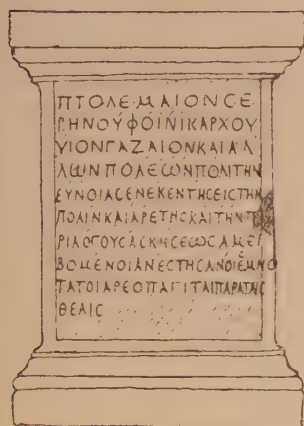 ΠΤΟΛΕΜΑΙΟΝΣΕ
ΡΗΝΟΥΦΟΙΝΙΚΑΡΧΟΥ
ΥΙΟΝΓΑΖΑΙΟΝΚΑΙΑΛ
ΛΩΝΠΟΛΕΩΝΠΟΛΙΤΗΝ
ΕΥΝΟΙΑΣΕΝΕΚΕΝΤΗΣΕΙΣΤΗΝ
ΠΟΛΙΝΚΑΙΑΡΕΤΗΣΚΑΙΤΗΝΠ
ΡΙΛΟΓΟΥΣΑΣΚΗΣΕΩΣΑΜΕΙ
ΒΟΜΕΝΟΙΑΝΕΣΤΗΣΑΝΟΙΣΕΜΝΟ
ΤΑΤΟΙΑΡΕΟΠΑΓΙΤΑΙΠΑΡΑΤΑΙΣ
ΘΕΑΙΣ